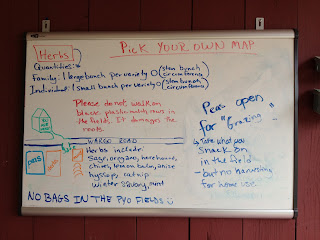 PICK YOUR OWN MAP
Herbs
Quantities:
Family: 1 large bunch per variety (stem bunch circumference)
Individual: 1 small bunch per variety (stem bunch circumference)
Please do not walk on
black, plastic mulch rows in
the fields. It damages the
roots.
WARGO ROAD
Herbs include:
Sage, oregano, horehound,
chives, lemon balm, anise
hyssop, catnip
winter savory, mint
NO BAGS IN THE PYO FIELDS
Peas open
for "Grazing"
Take what you
snack on
in the field
but no harvesting
for home use.